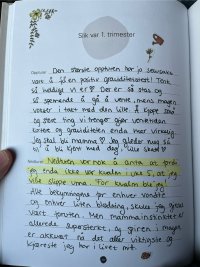 Slik var 1. trimester
Oppturer: Den største oppturen har jo selvsagt
vært å få en positiv graviditetstest! Tenk
så heldige vi er ♡ Der er så stas og
så spennende å gå å vente, mens magen
vokser i takt med den lille. Å kjøpe små
og store ting vi trenger gjør ventetiden
kortere og graviditeten enda mer virkelig.
Jeg skal bli mamma ♡ Jeg gleder meg så
til å bli kjent med deg, lille skatt ♡
Nedturer: Nedturen var nok å anta at fordi
jeg enda ikke var kvalm i uke 5, at jeg
ville slippe unna. For kvalm ble jeg!
Alle bekymringene for enhver vondt
og enhver liten blødning, skulle jeg gjerne
vært foruten. Men mammainstinktet er
allerede supersterkt, og spiren i magen
er akkurat nå det aller viktigste og
kjæreste jeg har i livet mitt.